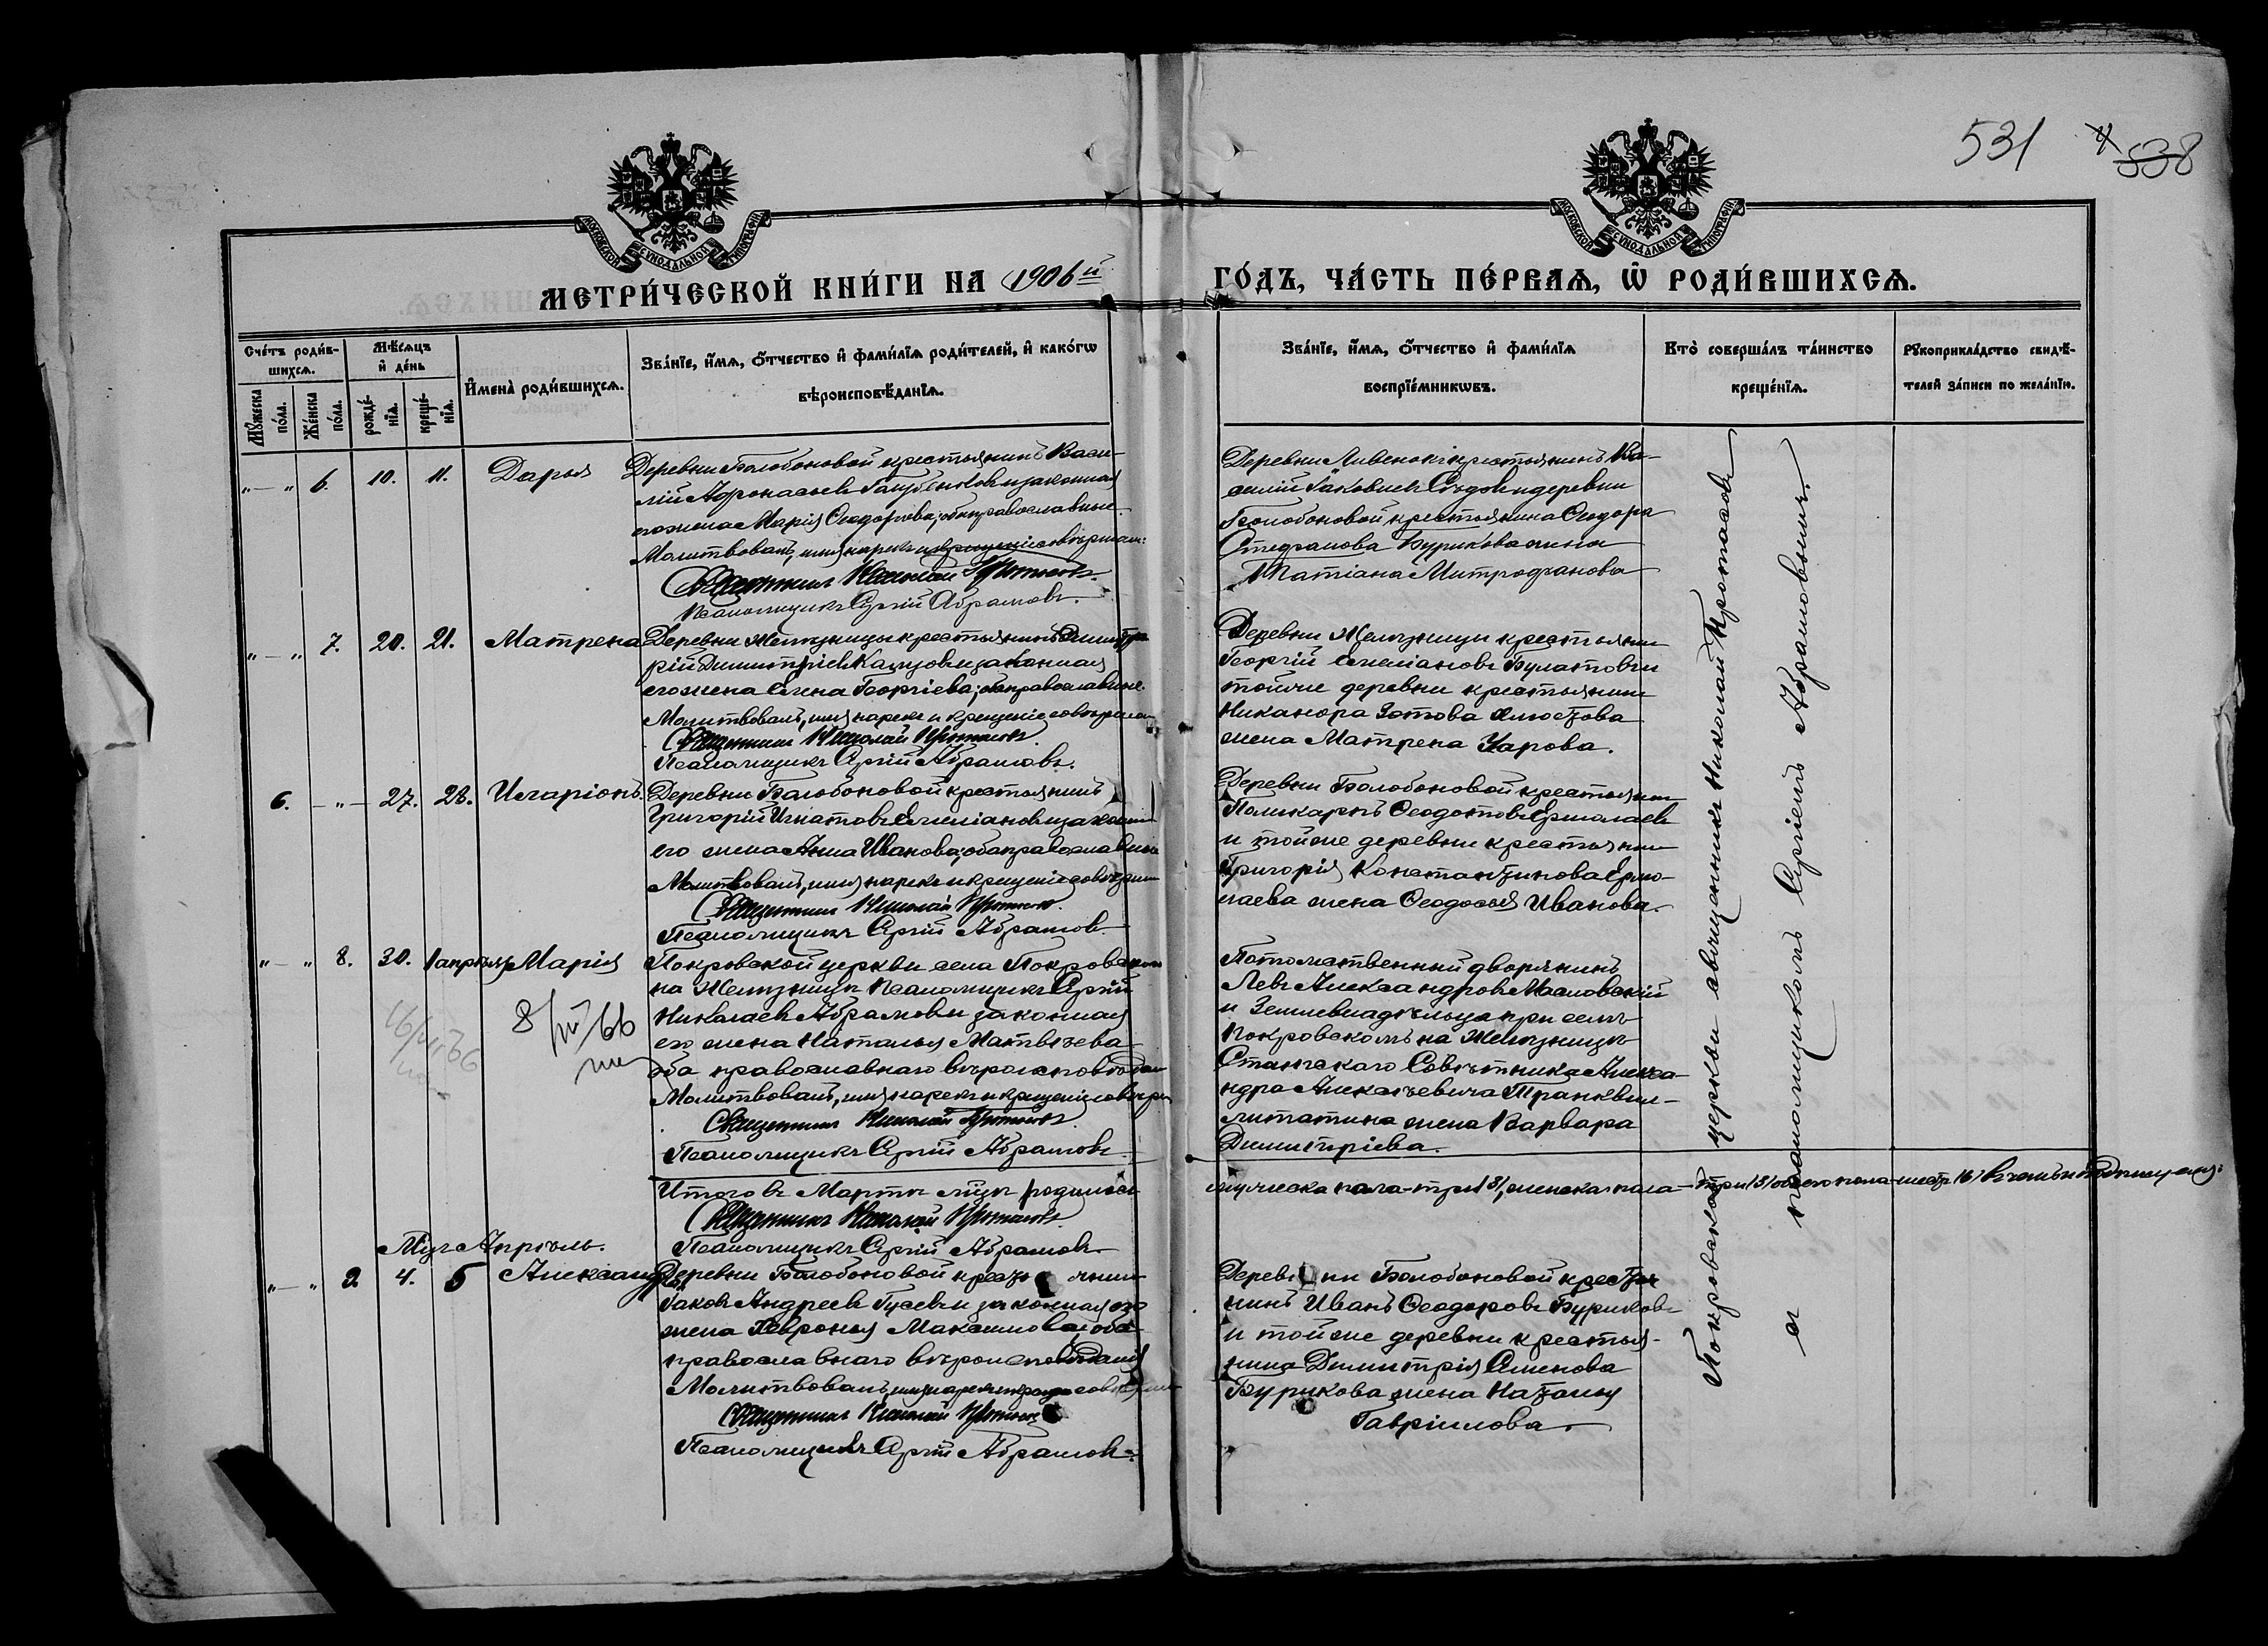 531
538
МОСКОВСКОЙ СѴНОДАЛЬНОЙ ТИПОГРАФІИ
МОСКОВСКОЙ СѴНОДАЛЬНОЙ ТИПОГРАФІИ
МЕТРИ́ЧЕСКОЙ КНИ́ГИ НА 1906й
ГО́ДЪ, ЧА́СТЬ ПЕ́РВАѦ, Ѿ РОДИ́ВШИХСѦ.
Сче́тъ роди́в-
шихсѧ.
Мꙋ́жеска по́ла.
Же́нска по́ла.
Мѣ́сѧцъ
и҆ де́нь
рожде́-
нїѧ.
креще́-
нїѧ.
И҆мена̀ роди́вшихсѧ.
Зва́нїе, и҆́мѧ, ѻ҆́тчество и҆ фами́лїѧ роди́телей, и҆ како́гѡ
вѣроисповѣ́данїѧ.
Зва́нїе, и҆́мѧ, ѻ҆́тчество и҆ фами́лїѧ
воспрїе́мникѡвъ.
Кто̀ соверша́лъ та́инство
креще́нїѧ.
Рꙋкоприкла́дство свидѣ́-
телей за́писи по жела́нїю.
"—" 6. 10. 11. Дарья
Деревни Болобоновой крестьянинъ Васи-
лій Афонасьевъ и законная
его жена Марія Ѳеодорова; оба православные.
Молитвовалъ, имя нарекъ и крещеніе совершалъ:
Священникъ Николай Протасовъ.
Псаломщикъ Сергій Абрамовъ.
Деревни Ливенокъ крестьянинъ Ва-
силій Іаковлевъ Сѣдовъ и деревни
Болобоновой крестьянина Ѳеодора
Стефанова Бурикова жена
Татіана Митрофанова
"—" 7. 20. 21. Матрена
Деревни Желѣзницы крестьянинъ Дими-
трій Димитріевъ и законная
его жена Елена Георгіева; оба православные.
Молитвовалъ, имя нарекъ и крещеніе совершалъ
Священникъ Николай Протасовъ.
Псаломщикъ Сергій Абрамовъ.
Деревни Желѣзницы крестьянинъ
Георгій Емеліановъ Булатовъ и
тойже деревни крестьянина
Никанора Зотова
жена Матрена Уарова.
6. —"— 27. 28. Иларіонъ.
Деревни Болобоновой крестьянинъ
Григорій Игнатовъ Емеліановъ и законная
его жена Анна Иванова; оба православные
Молитвовалъ, имя нарекъ и крещеніе совершалъ
Священникъ Николай Протасовъ.
Псаломщикъ Сергій Абрамовъ.
Деревни Болобоновой крестьянинъ
Поликарпъ Ѳеодотовъ Ермолаевъ
и тойже деревни крестьянина
Григорія Константинова Ермо-
лаева жена Ѳеодосья Иванова.
"—" 8. 30. 1 апрѣля Марія
8/VI 66
Покровской церкви села Покровскаго
на Желѣзницѣ псаломщикъ Сергій
Николаевъ Абрамовъ и законная
его жена Наталья Матвѣева
оба православнаго вѣроисповѣданія
Молитвовалъ, имя нарекъ и крещеніе совершалъ
Священникъ Николай Протасовъ.
Псаломщикъ Сергій Абрамовъ
Потомственный дворянинъ
Левъ Александровъ Масловскій
и Землевладѣльца при селѣ
Покровскомъ на Желѣзницѣ
Статскаго Совѣтника Алекса-
ндра Алексѣевича Транквил-
литатина жена Варвара
Димитріева.
Итого въ Мартѣ мѣсяцѣ родилось
мужеска пола-три /3/, женска пола-три /3/ обоего пола-шесть /6/ въ чемъ и подписуемся:
Священникъ Николай Протасовъ.
Псаломщикъ Сергій Абрамовъ
Мѣсяцъ Апрѣль.
"—" 9. 4. 5 Александра
Деревни Болобоновой крестьянинъ
Іаковъ Андреевъ Гусевъ и законная его
жена Хевронья Максимова; оба
православнаго вѣроисповѣданія
Молитвовалъ, имя нарекъ и крещеніе совершалъ
Священникъ Николай Протасовъ
Псаломщикъ Сергій Абрамовъ.
Деревни Болобоновой крестья-
нинъ Иванъ Ѳеодоровъ Буриковъ
и тойже деревни крестья-
нина Димитрія Семенова
Бурикова жена Наталья
Гавріилова.
Покровской церкви священникъ Николай Протасовъ
съ псаломщикомъ Сергіемъ Абрамовымъ.